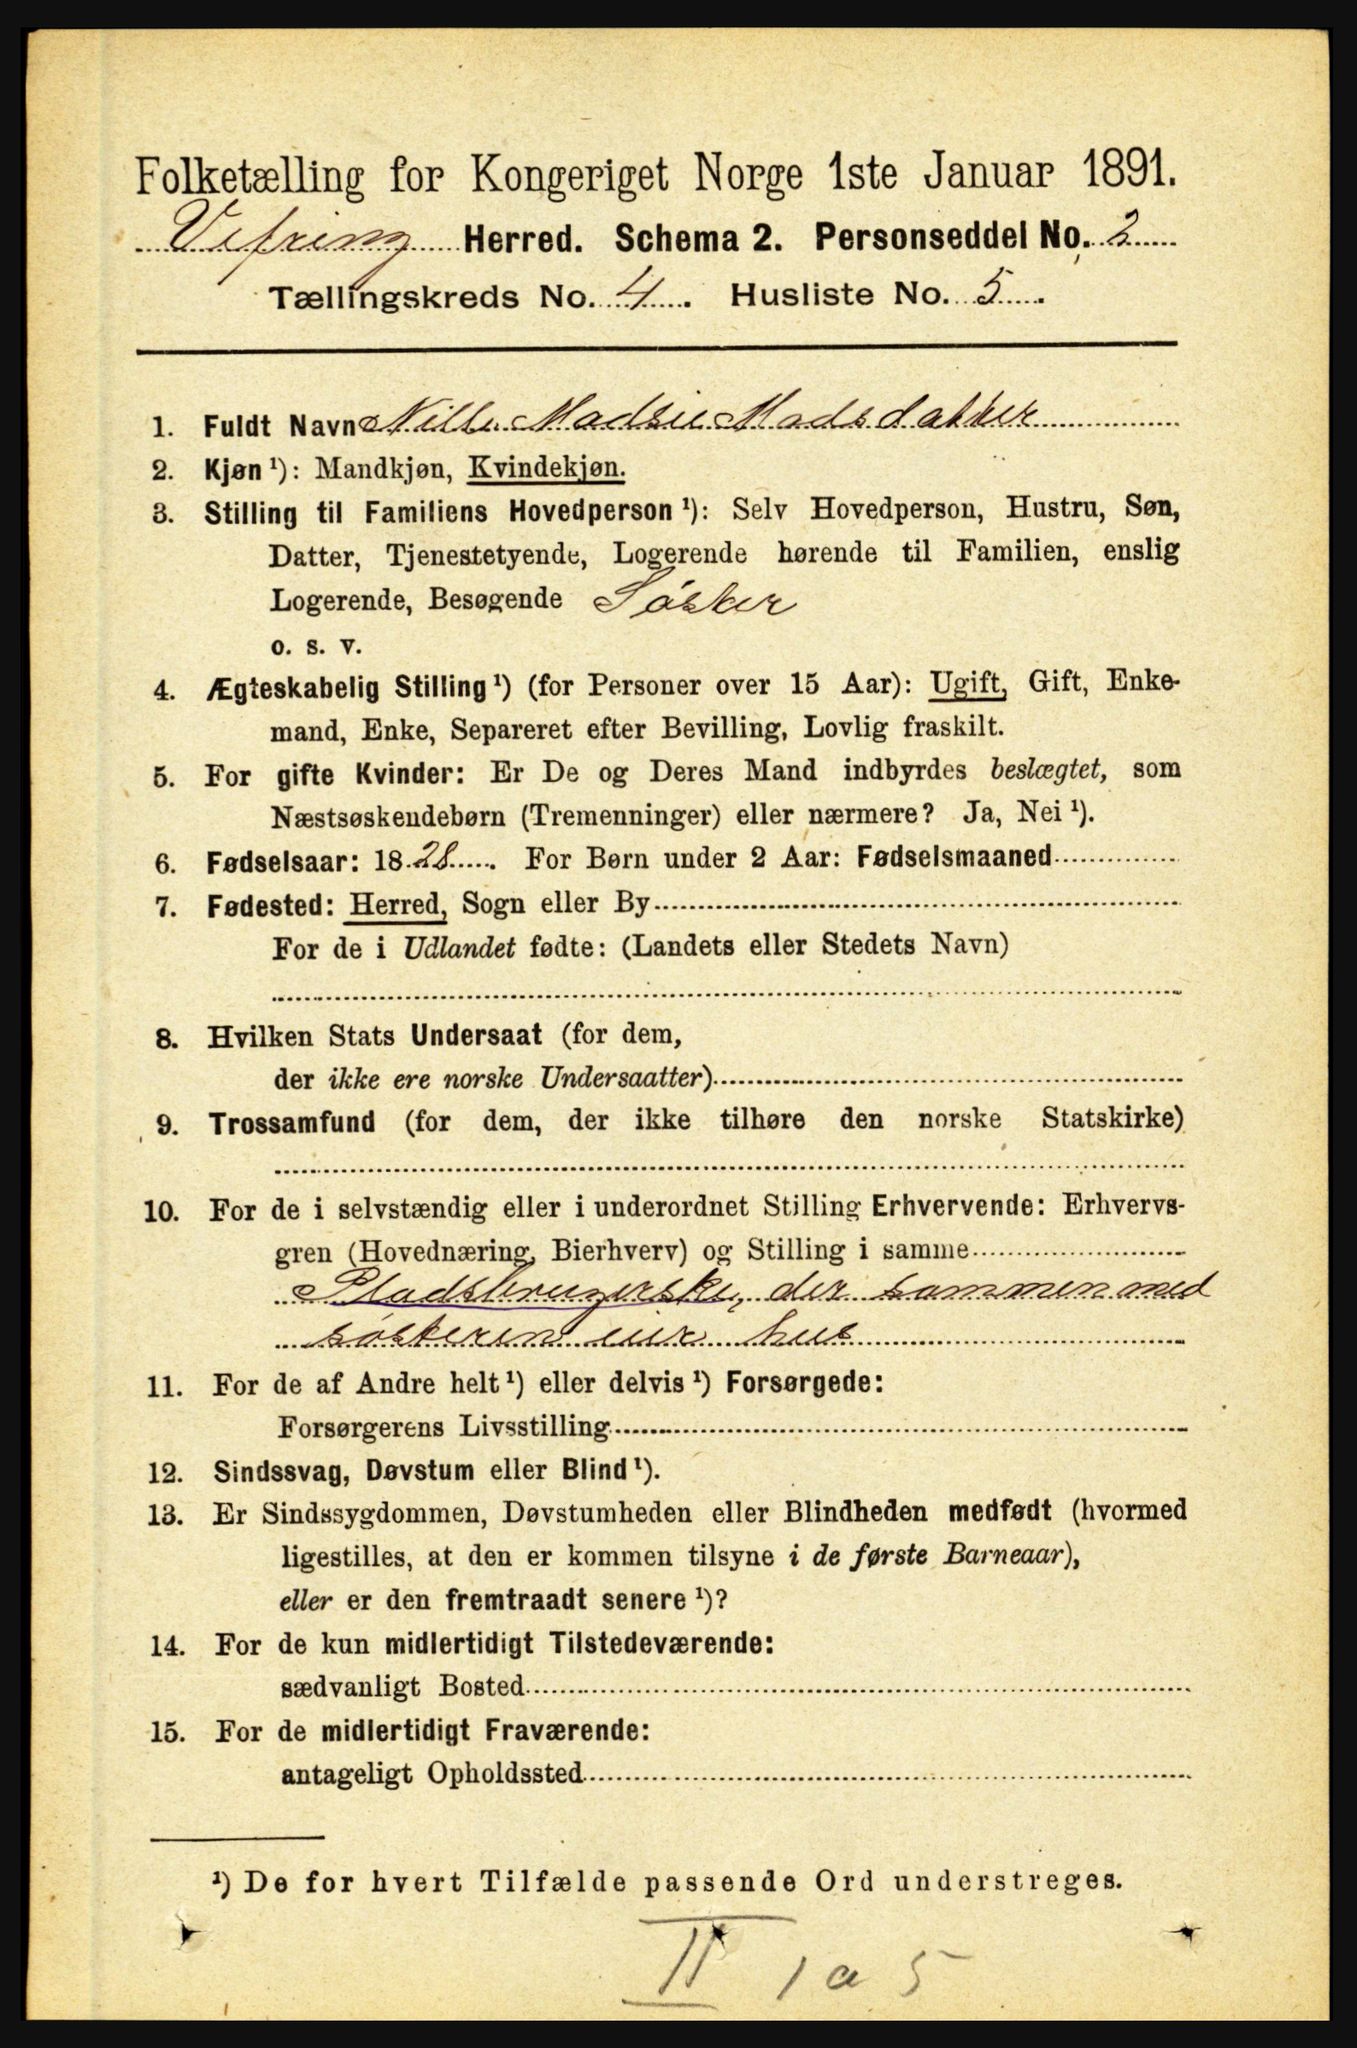 Folketælling for Kongeriget Norge 1ste Januar 1891.
Vefring Herred. Schema 2. Personseddel No. 2
Tællingskreds No. 4. Husliste No. 5.
1. Fuldt Navn Nille Madsie Madsdatter
2. Kjøn ¹): Mandkjøn, Kvindekjøn.
3. Stilling til Familiens Hovedperson ¹): Selv Hovedperson, Hustru, Søn,
Datter, Tjenestetyende, Logerende hørende til Familien, enslig
Logerende, Besøgende Søster
o. s. v.
4. Ægteskabelig Stilling ¹) (for Personer over 15 Aar): Ugift, Gift, Enke-
mand, Enke, Separeret efter Bevilling, Lovlig fraskilt.
5. For gifte Kvinder: Er De og Deres Mand indbyrdes beslægtet, som
Næstsøskendebørn (Tremenninger) eller nærmere? Ja, Nei ¹).
6. Fødselsaar: 1828. For Børn under 2 Aar: Fødselsmaaned
7. Fødested: Herred, Sogn eller By
For de i Udlandet fødte: (Landets eller Stedets Navn)
8. Hvilken Stats Undersaat (for dem,
der ikke ere norske Undersaatter)
9. Trossamfund (for dem, der ikke tilhøre den norske Statskirke)
10. For de i selvstændig eller i underordnet Stilling Erhvervende: Erhvervs-
gren (Hovednæring, Bierhverv) og Stilling i samme
Pladsbrugerske, der sammen med
søsteren eier hus
11. For de af Andre helt ¹) eller delvis ¹) Forsørgede:
Forsørgerens Livsstilling
12. Sindssvag, Døvstum eller Blind ¹).
13. Er Sindssygdommen, Døvstumheden eller Blindheden medfødt (hvormed
ligestilles, at den er kommen tilsyne i de første Barneaar),
eller er den fremtraadt senere ¹)?
14. For de kun midlertidigt Tilstedeværende:
sædvanligt Bosted
15. For de midlertidigt Fraværende:
antageligt Opholdssted
¹) De for hvert Tilfælde passende Ord understreges.
II 1a 5